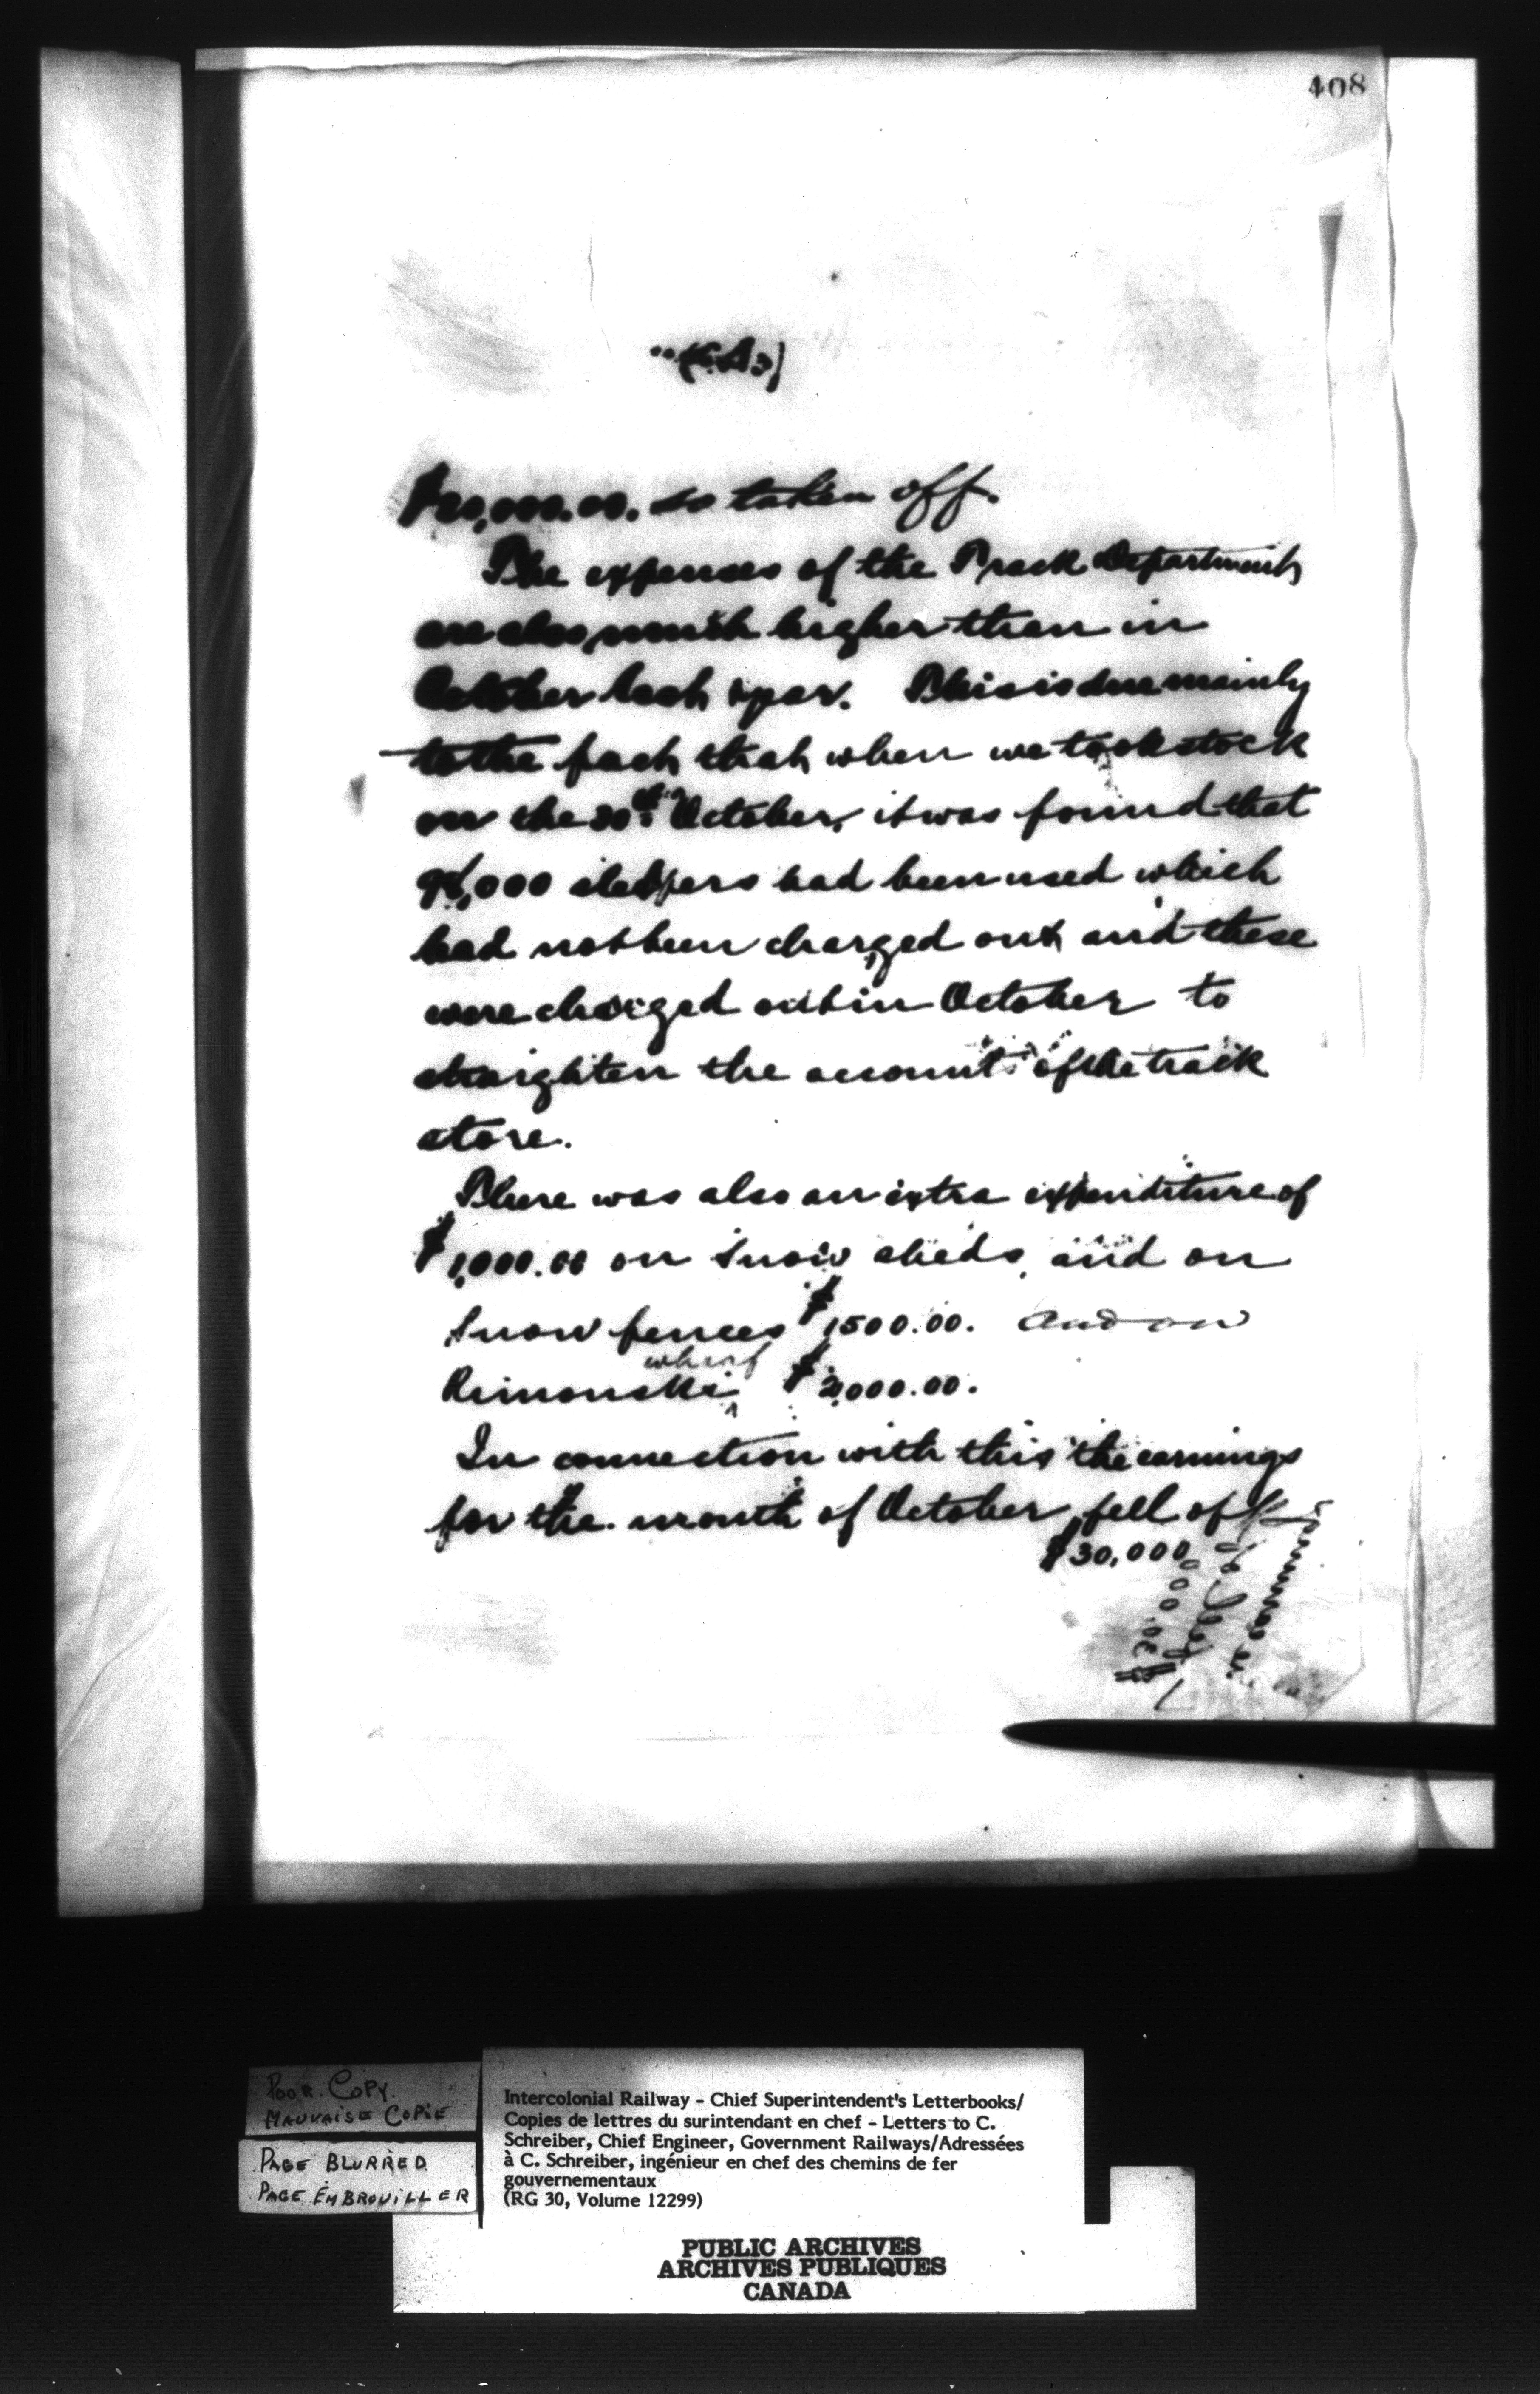 408
$20,000.00. so taken off.
The expenses of the Track Department
are also much higher than in
October last year. This is due mainly
to the fact that when we took stock
on the 30th October, it was found that
,000 sleepers had been used which
had not been charged out and these
were charged out in October to
straighten the account of the track
store.
There was also an extra expenditure of
$1,000.00 on snow sheds, and on
Snow fences $1500.00. and on
Rimouski wharf $2,000.00.
In connection with this the earnings
for the month of October fell off
$30,000
POOR COPY.
MAUVAISE COPIE
PAGE BLURRED
PAGE EMBROUILLER
Intercolonial Railway - Chief Superintendent's Letterbooks/
Copies de lettres du surintendant en chef - Letters to C.
Schreiber, Chief Engineer, Government Railways/Adressées
à C. Schreiber, ingénieur en chef des chemins de fer
gouvernementaux
(RG 30, Volume 12299)
PUBLIC ARCHIVES
ARCHIVES PUBLIQUES
CANADA